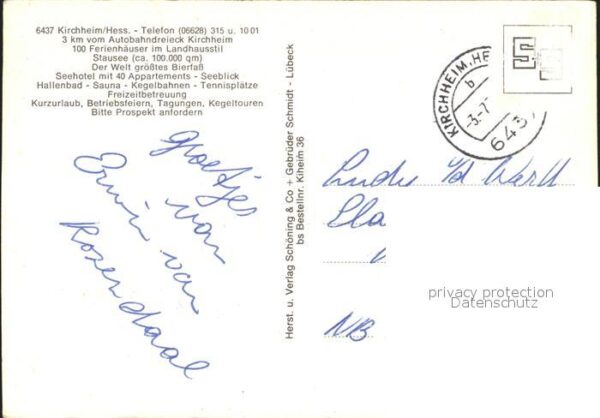 6437 Kirchheim/Hess. - Telefon (06628) 315 u. 1001
3 km vom Autobahndreieck Kirchheim
100 Ferienhäuser im Landhausstil
Stausee (ca. 100.000 qm)
Der Welt größtes Bierfaß
Seehotel mit 40 Appartements - Seeblick
Hallenbad - Sauna - Kegelbahnen - Tennisplätze
Freizeitbetreuung
Kurzurlaub, Betriebsfeiern, Tagungen, Kegeltouren
Bitte Prospekt anfordern
groetjes
van
Erwin van
Rosendaal
Herst. u. Verlag Schöning & Co + Gebrüder Schmidt - Lübeck
bs Bestellnr. Kiheim 36
KIRCHHEIM, HE
b
-3.-7
643
v/d
NB
privacy protection
Datenschutz